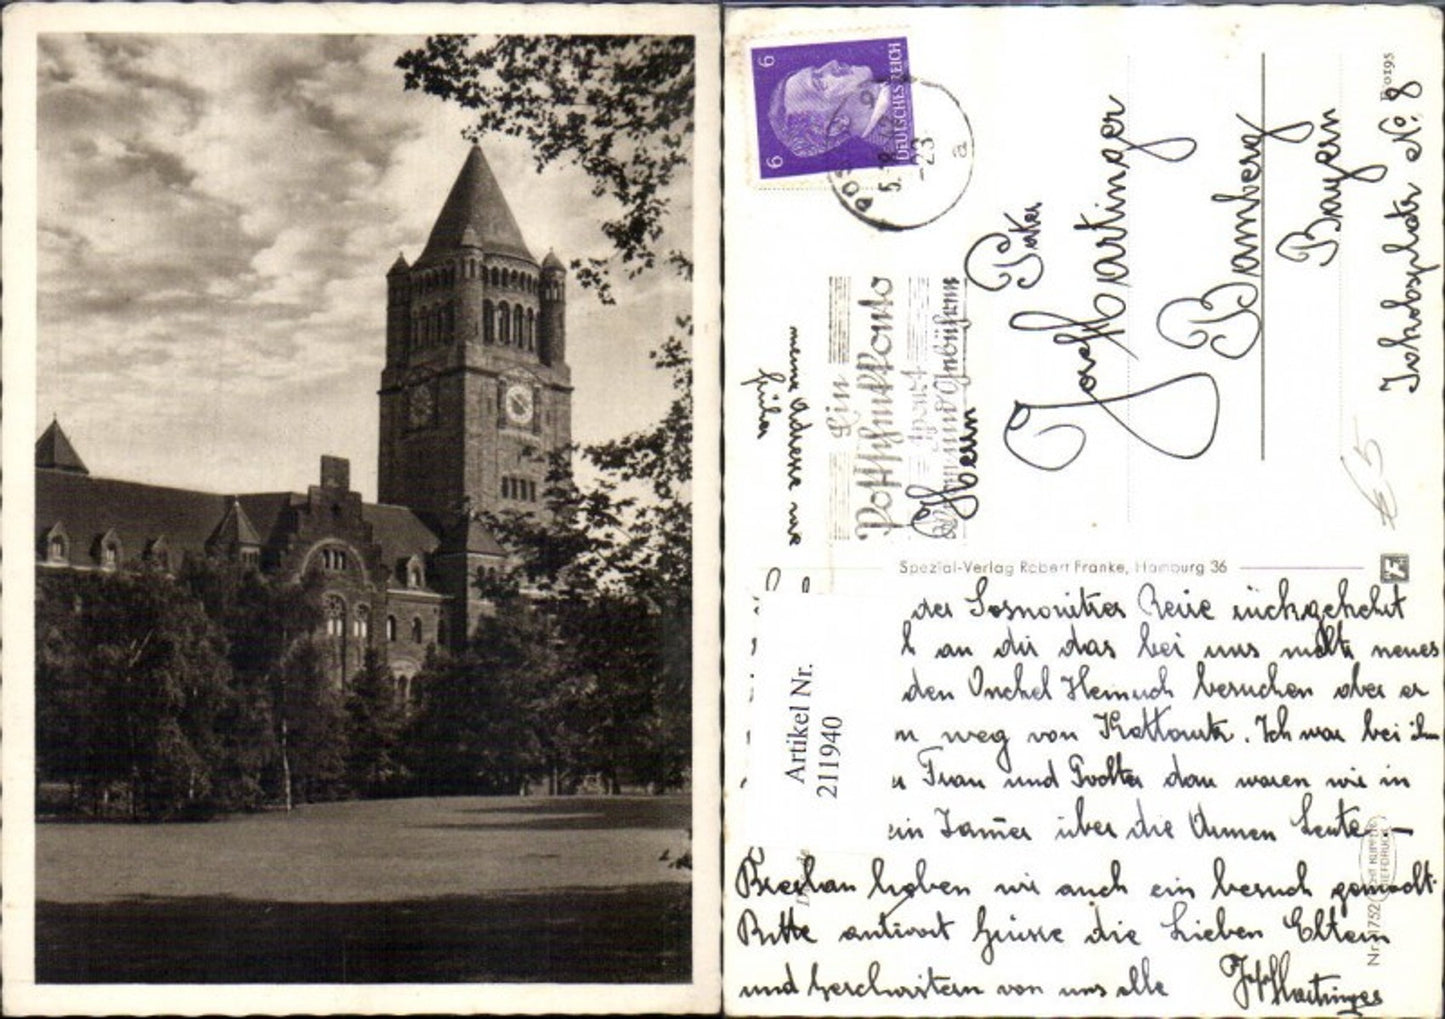 6
6
DEUTSCHES REICH
POSEN
-23
a
Ein
Postscheckkonto
erspart
meine Adresse wie
früher
Herrn
Josef Hartinger
Bamberg
Bayern
Jakobsplatz No. 8
€ 5
Spezial-Verlag Robert Franke, Hamburg 36
der Sosnowitzer Reise rückgekehrt
an dir das bei uns nichts neues
den Onckel Heinrich besuchen aber er
weg von Kattowitz. Ich war bei ihm
Frau und Tochter dan waren wir in
ein Jam̄er über die Armen Leute —
Breslau haben wir auch ein besuch gemacht.
Bitte antwort Grüsse die Lieben Eltern
und Geschwistern von uns alle
Josef Hartinger
Artikel Nr.
211940